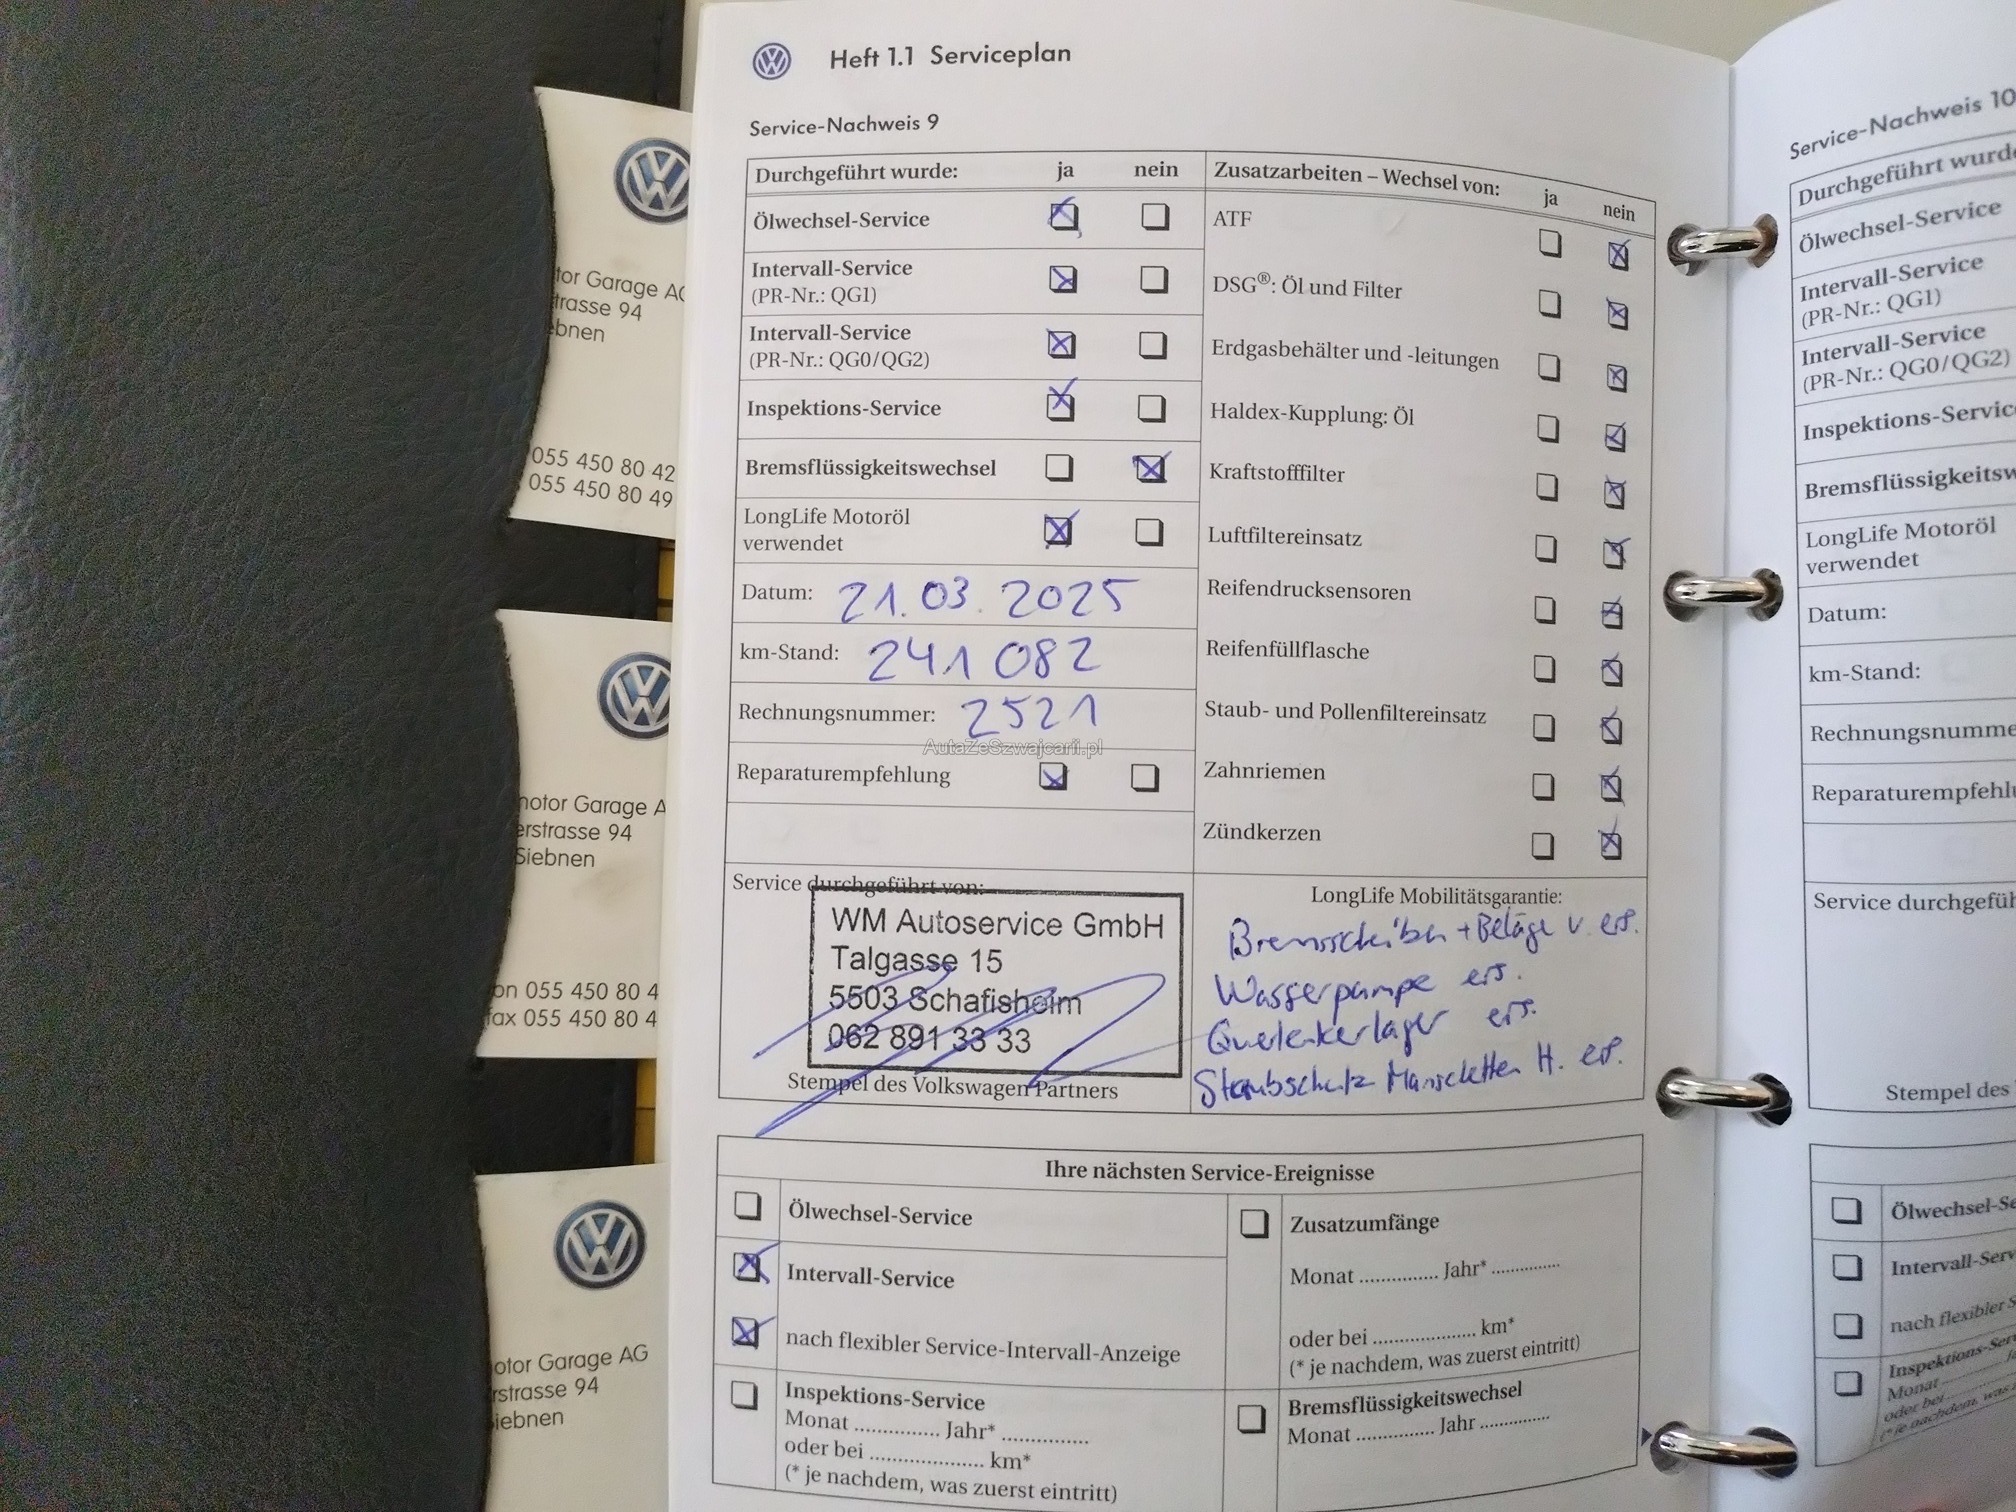 Heft 1.1 Serviceplan
Service-Nachweis 9
Durchgeführt wurde: ja nein
Ölwechsel-Service
Intervall-Service
(PR-Nr.: QG1)
Intervall-Service
(PR-Nr.: QG0/QG2)
Inspektions-Service
Bremsflüssigkeitswechsel
LongLife Motoröl
verwendet
Datum: 21.03.2025
km-Stand: 241 082
Rechnungsnummer: 2521
AutaZeSzwajcarii.pl
Reparaturempfehlung
Zusatzarbeiten – Wechsel von: ja nein
ATF
DSG®: Öl und Filter
Erdgasbehälter und -leitungen
Haldex-Kupplung: Öl
Kraftstofffilter
Luftfiltereinsatz
Reifendrucksensoren
Reifenfüllflasche
Staub- und Pollenfiltereinsatz
Zahnriemen
Zündkerzen
Service durchgeführt von:
WM Autoservice GmbH
Talgasse 15
5503 Schafisheim
062 891 33 33
Stempel des Volkswagen Partners
LongLife Mobilitätsgarantie:
Bremsscheiben + Beläge v. ers.
Wasserpumpe ers.
Querlenkerlager ers.
Staubschutz Manschetten H. ers.
Ihre nächsten Service-Ereignisse
Ölwechsel-Service
Intervall-Service
nach flexibler Service-Intervall-Anzeige
Inspektions-Service
Monat ............... Jahr* ...............
oder bei .................... km*
(* je nachdem, was zuerst eintritt)
Zusatzumfänge
Monat ............... Jahr* ...............
oder bei .................... km*
(* je nachdem, was zuerst eintritt)
Bremsflüssigkeitswechsel
Monat ............... Jahr ...............
VW
tor Garage AG
trasse 94
ebnen
055 450 80 42
055 450 80 49
VW
motor Garage A
erstrasse 94
Siebnen
on 055 450 80 4
fax 055 450 80 4
VW
otor Garage AG
rstrasse 94
iebnen
Service-Nachweis 10
Durchgeführt wurde
Ölwechsel-Service
Intervall-Service
(PR-Nr.: QG1)
Intervall-Service
(PR-Nr.: QG0/QG2)
Inspektions-Service
Bremsflüssigkeitsw
LongLife Motoröl
verwendet
Datum:
km-Stand:
Rechnungsnumme
Reparaturempfehlu
Service durchgefüh
Stempel des
Ölwechsel-Se
Intervall-Serv
nach flexible
Inspektions-Se
Monat
oder bei
(* je nachdem, was